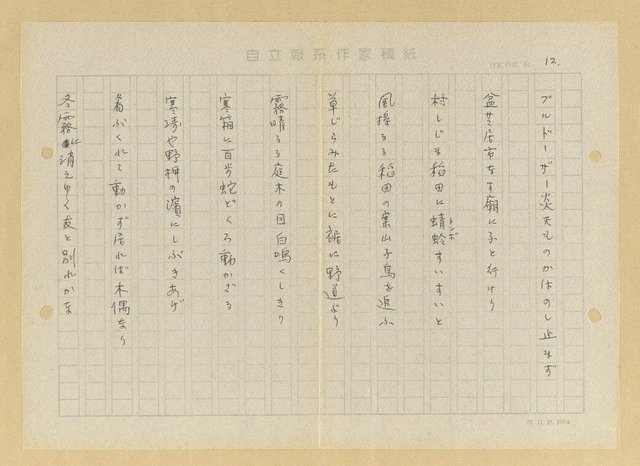 自立報系作家稿紙
12.
ブルドーザー炎天ものかはのし止まず
盆芝居市なす廟に子と行けり
村しじま稲田に蜻蛉すいすいと
トンボ
風操る稲田の案山子鳥を追ふ
草じらみたもとに裾に野道より
霧晴るる庭木の目白鳴くしきり
寒箱に百歩蛇どくろ動かざる
寒濤や野柳の濱にしぶきあげ
着ぶくれて動かず居れば木偶なり
冬霧に消えゆく友と別れかな